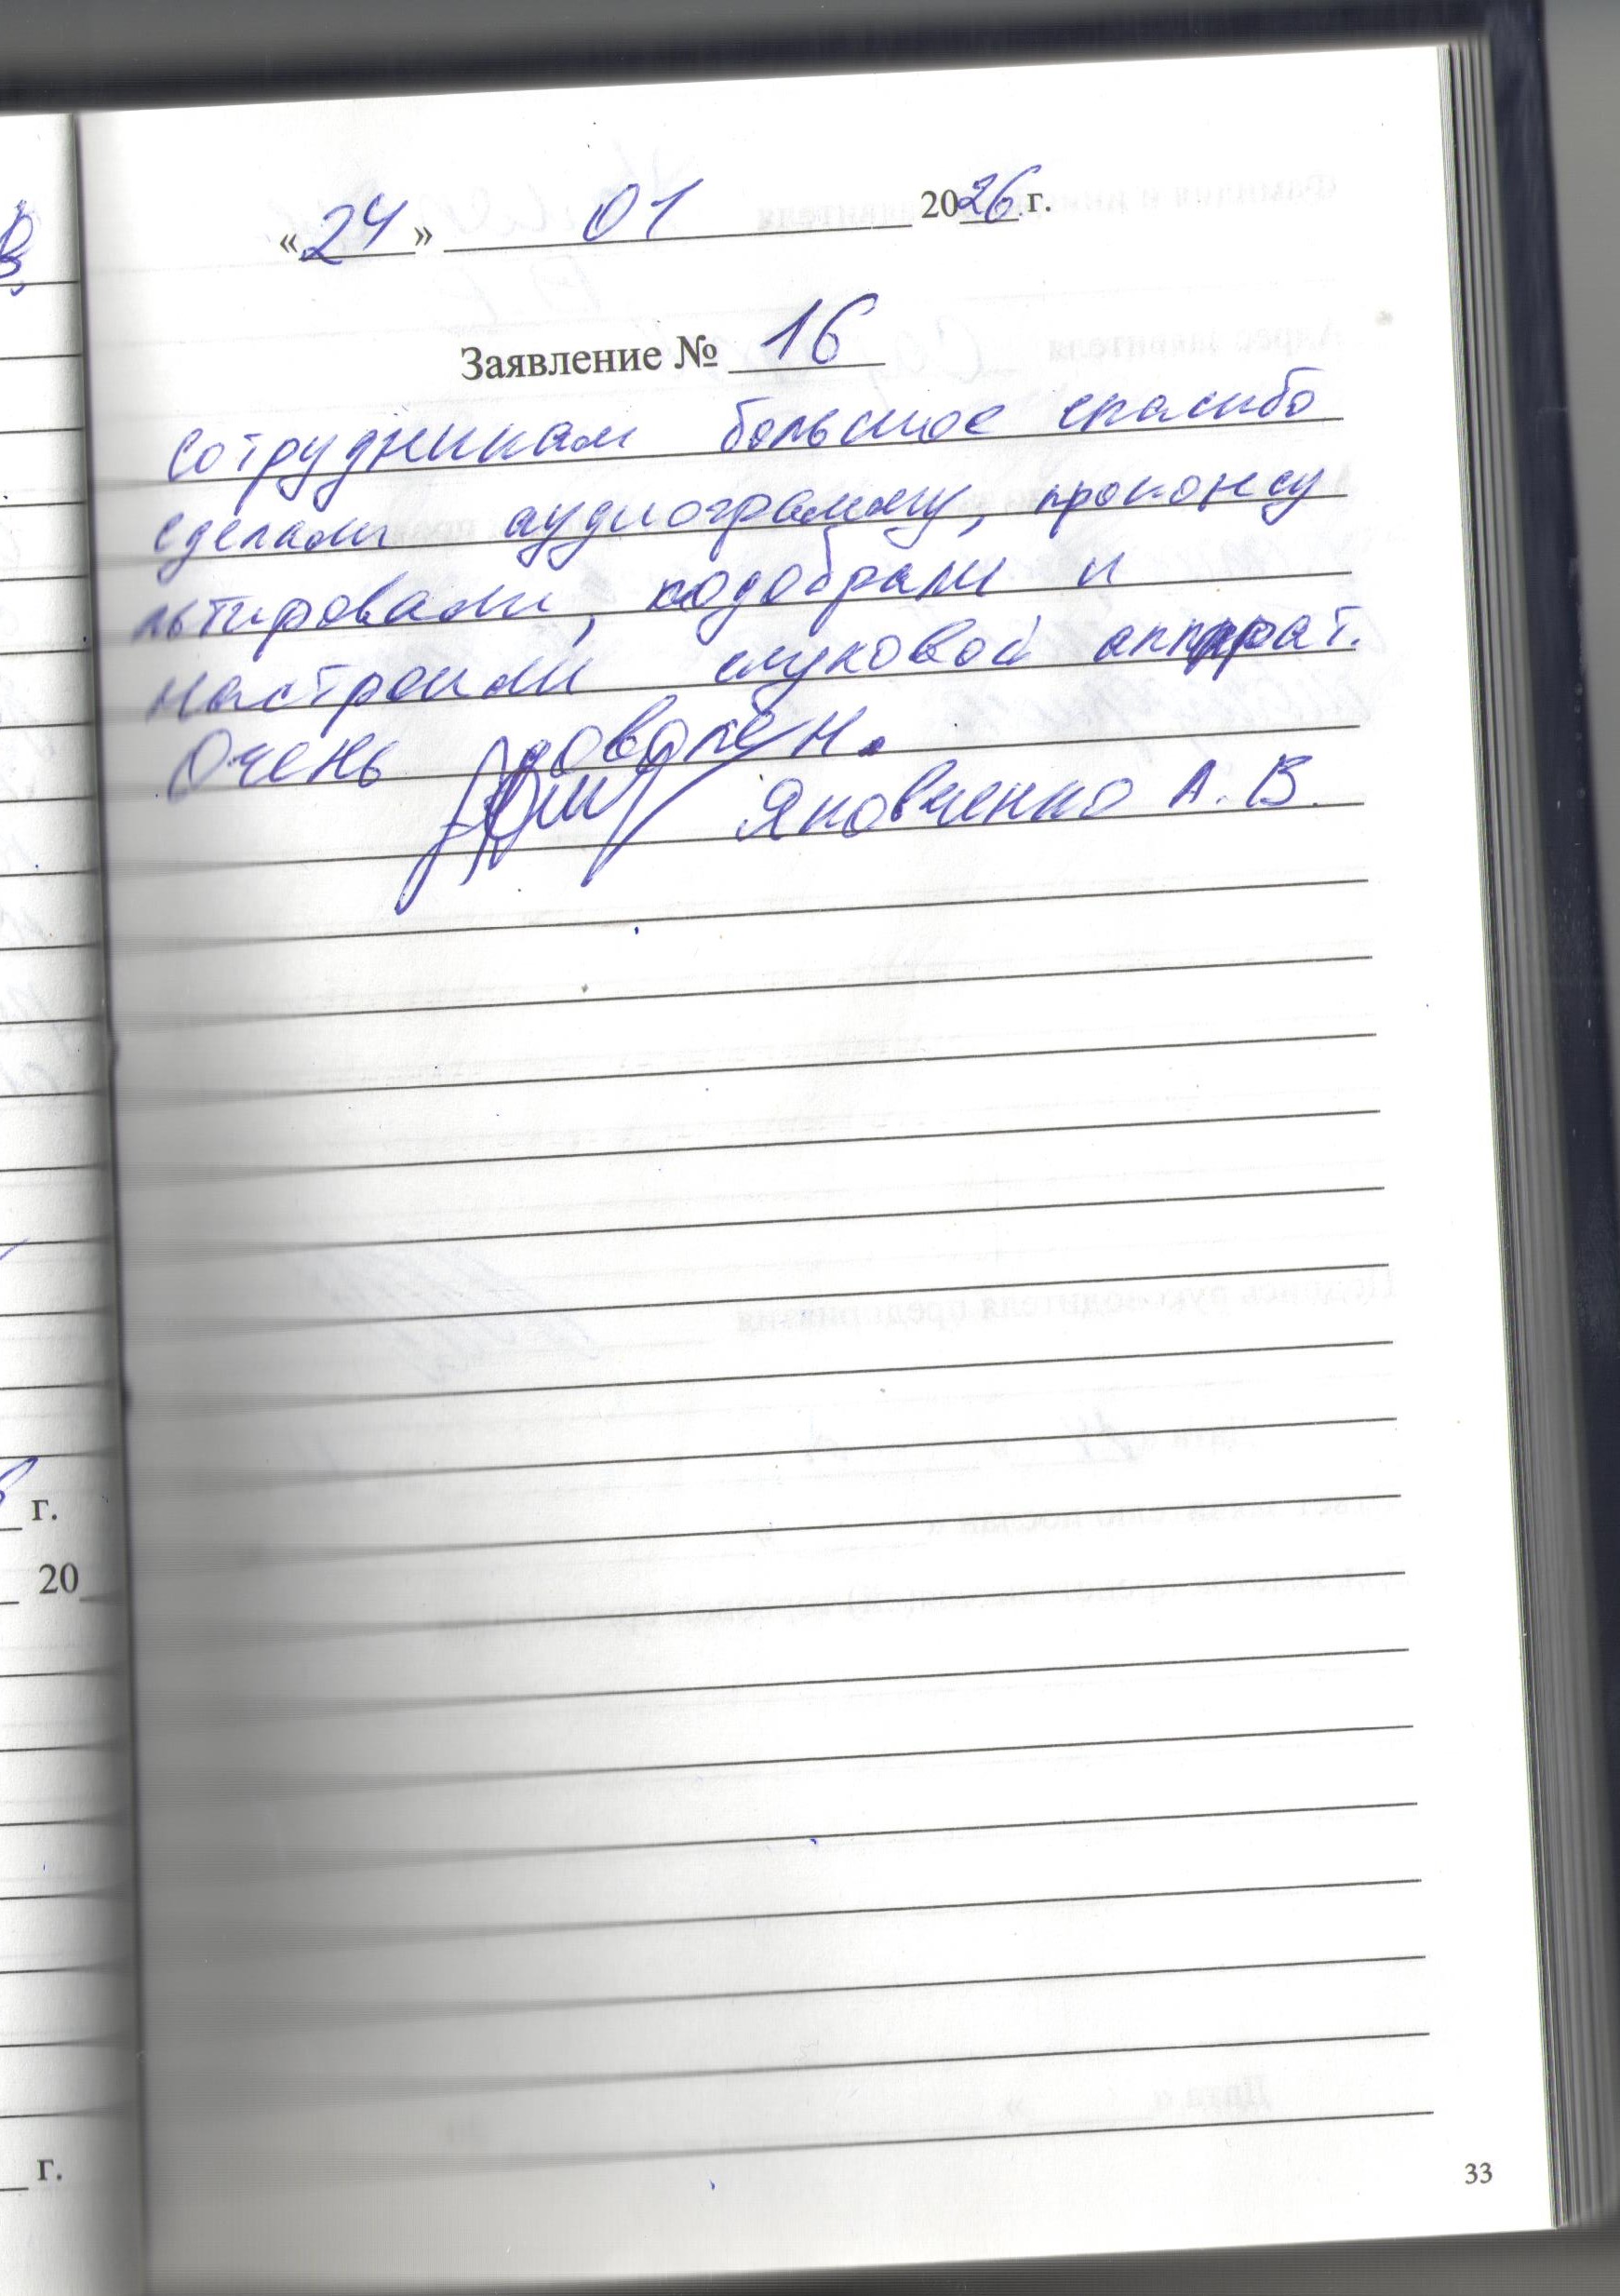 «24» 01 2026 г.
Заявление № 16
Сотрудникам большое спасибо
сделали аудиограмму, проконсу
льтировали, подобрали и
настроили слуховой аппарат.
Очень доволен.
Яковченко А. В.
г.
20
г.
33